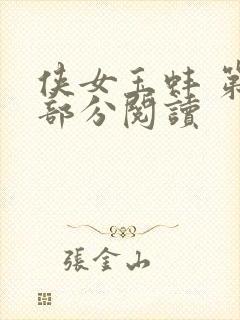 侠女玉蚌 第
部分閱讀
張金山